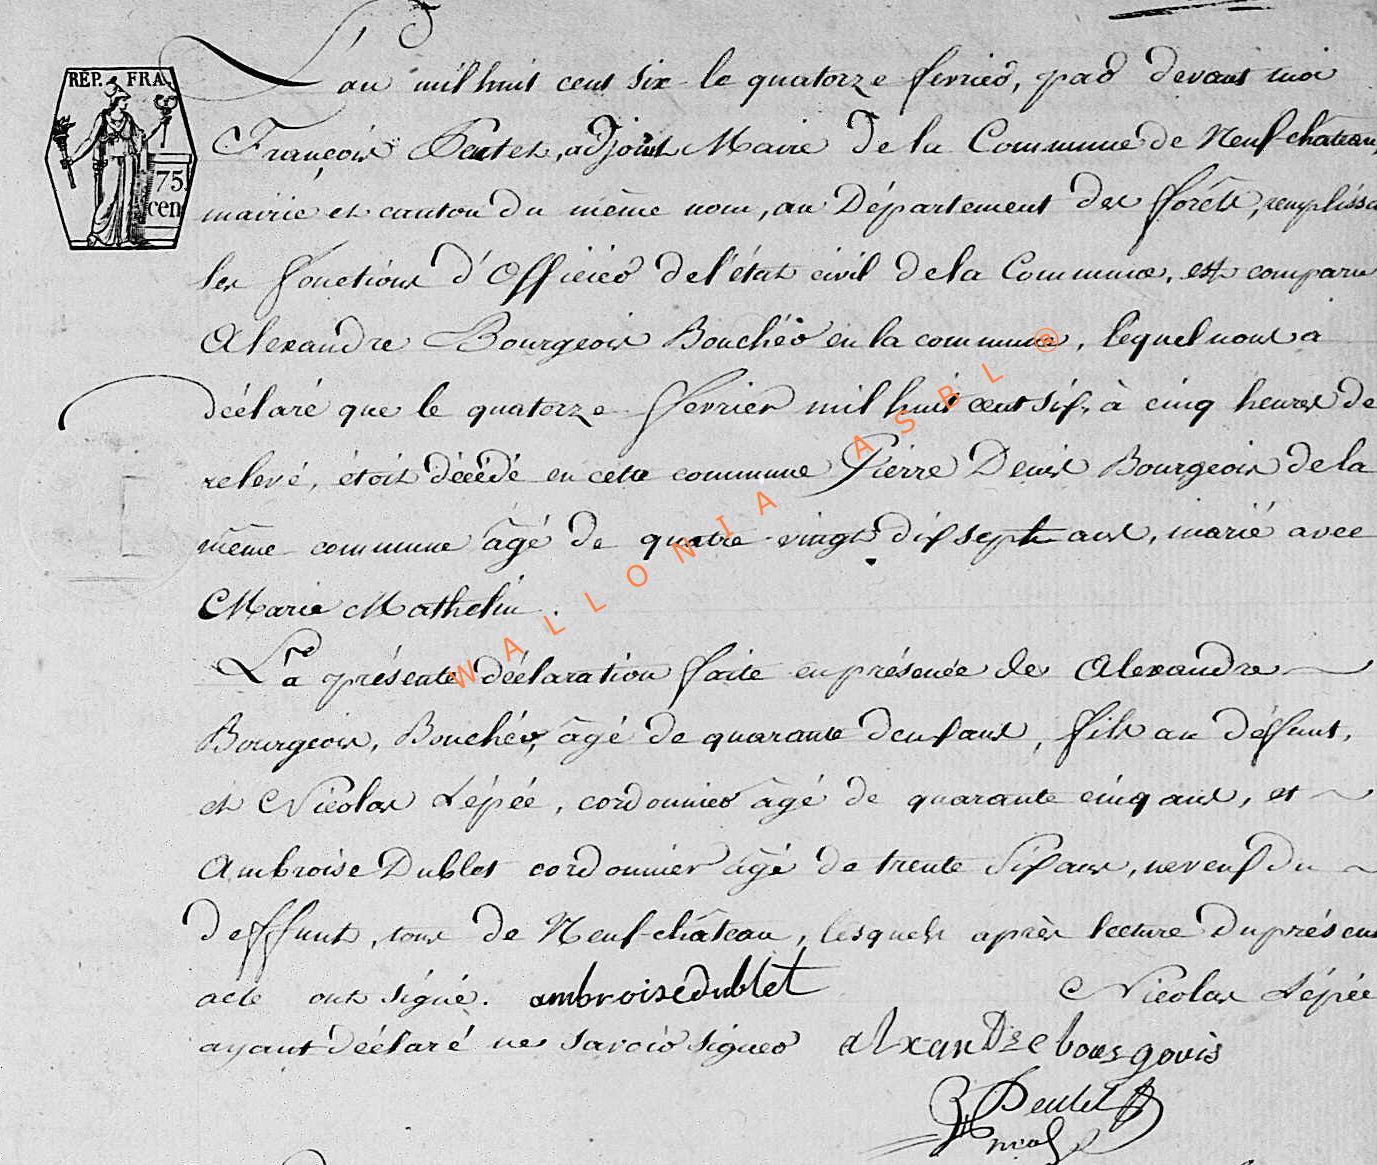 REP. FRA.
75
cen
L'an mil huit cent six le quatorze fevrier, par devant moi
François adjoint Maire de la Commune de Neufchâteau,
mairie et canton du même nom, au Département des forêts, remplissa
les fonctions d'Officier de l'état civil de la Commune, est comparu
Alexandre Bourgeois Bouchér en la commune, lequel nous a
déclaré que le quatorze fevrier mil huit cent six, à cinq heures de
relevé, étoit décédé en cette commune Pierre Denis Bourgeois de la
même commune âgé de quatre vingt dix sept ans, marié avec
Marie Mathelin.
La présente déclaration faite en présence de Alexandre
Bourgeois, Bouchér, âgé de quarante deux ans, fils au défunt,
et Nicolas Lépée, cordonnier âgé de quarante cinq ans, et
Ambroise Dublet cordonnier âgé de trente six ans, neveux du
deffunt, tous de Neufchâteau, lesquels après lecture du présent
acte ont signé. ambroise dublet Nicolas Lépée
ayant déclaré ne savoir signer alxandre bourgouis
WALLONIA ASBL ®